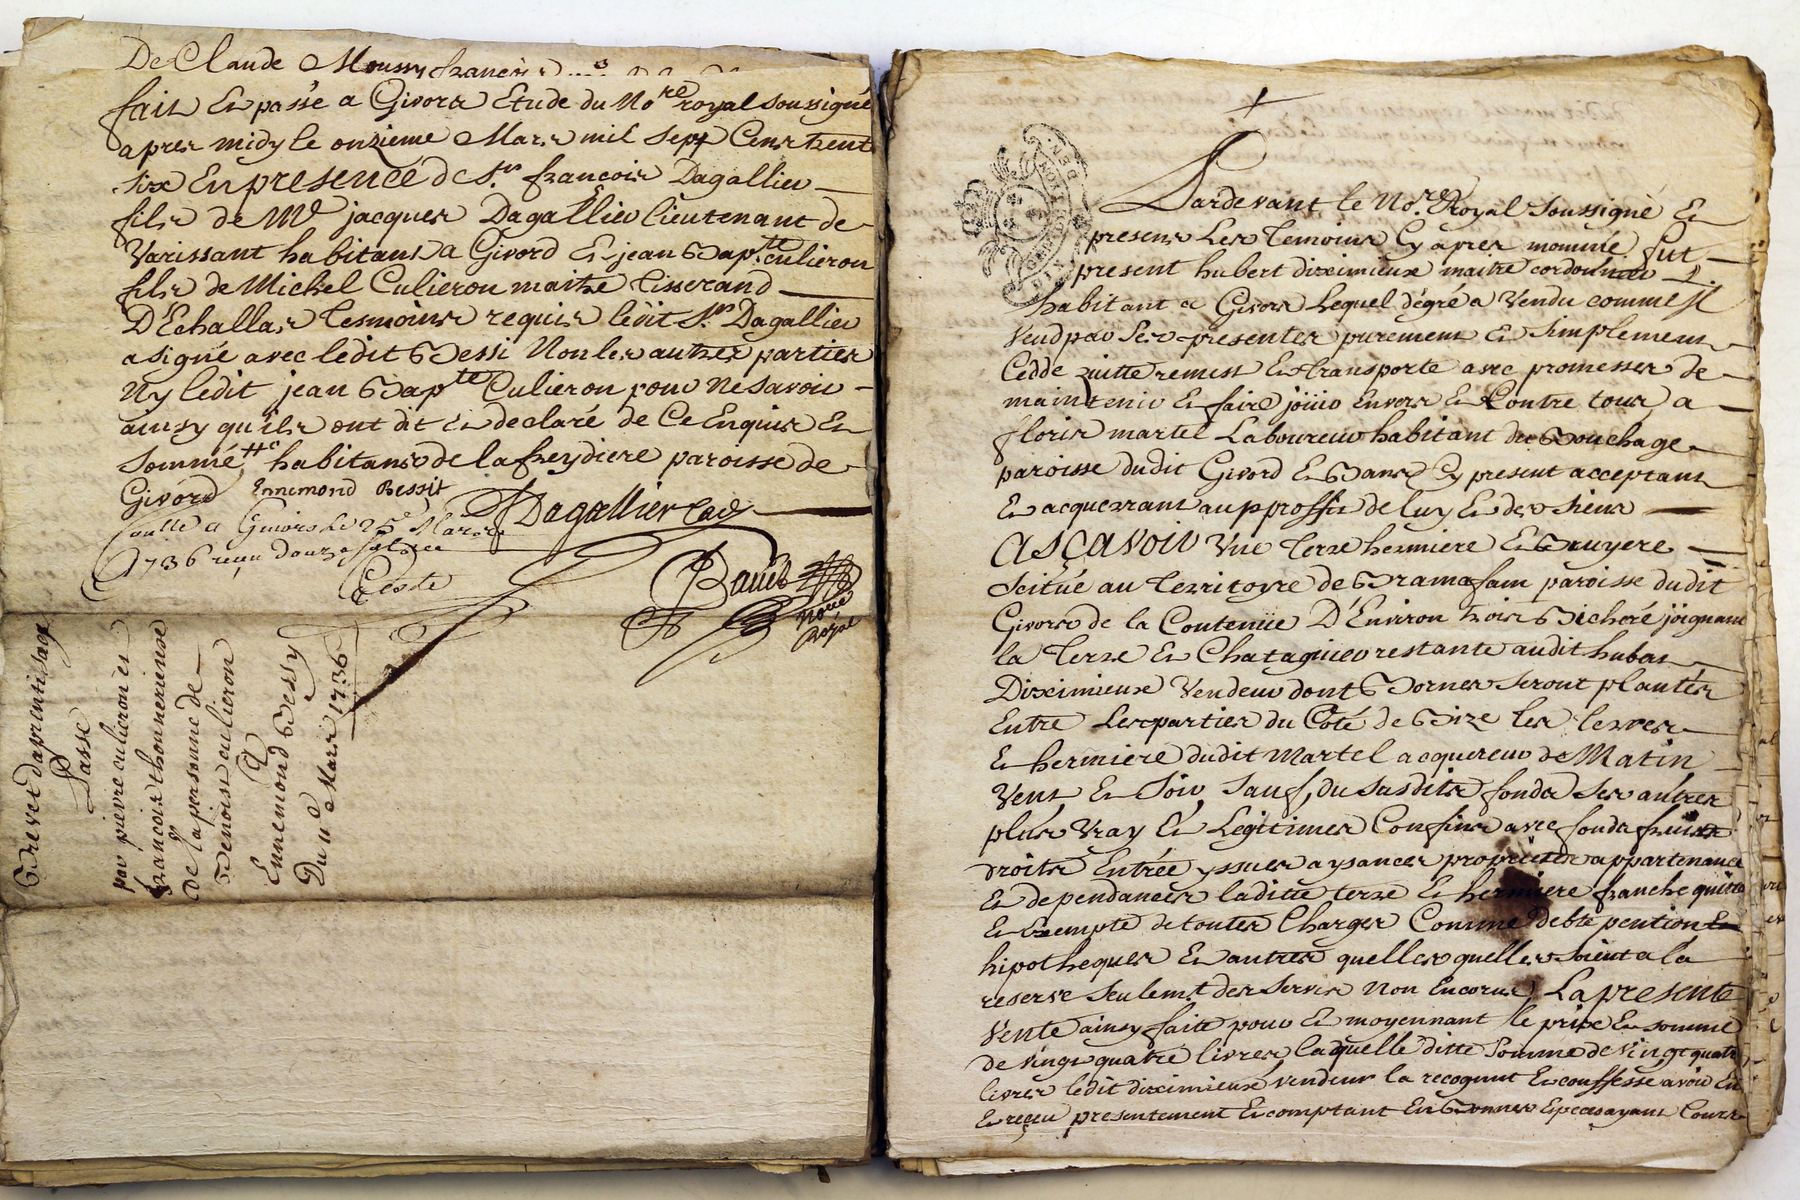 De Claude Moussy francois
fait Et passé a Givors Etude du No.re royal soussigné
apres midy le onzieme Mars mil sept Cens trente
six En presence de S.r francois Dagallier
fils de M.e jacques Dagallier lieutenant de
Varissant habitans a Givord Et jean Bap.te culieron
fils de Michel Culieron maitre tisserand
D'Echallas tesmoins requis ledit S.r Dagallier
a signé avec ledit Bessi Non les autres parties
Ny ledit jean Bap.te Culieron pour ne savoir
ainsy qu'ils ont dit Et declaré de Ce Enquis Et
sommé habitans de la freydiere paroisse de
Givord Ennemond Bessit
Dagallier
a Givors Le 25e Mars
1736 reçu douze sols
Coste
Royal
Brevet daprentissage
Passé
par pierre culieron et
francoise thonnerieuse
de la personne de
Benoist culieron
a
Ennemond Bessy
Du Mars 1736
Pardevant le No.re Royal soussigné Et
presens Les temoins Cy apres nommés fut
present hubert diximieux maitre cordonnier
habitant a Givors Lequel de gré a Vendu comme Il
Vend par Ses presentes purement Et simplement
Cedde quitte remest Et transporte avec promesses de
maintenir Et faire joüir Envers Et Contre tous, a
floris martel Laboureur habitant du Bouchage
paroisse dudit Givord Et Bans Cy present acceptant
Et acquerrant au proffit de luy Et des siens
ASÇAVOIR Une terre hermiere Et Bruyere
Scitüé au territoyre de Bramafam paroisse dudit
Givors de la Contenüe D'Environ trois Bicheré joignant
la terre Et Chataignier restante audit hubert
Diximieux Vendeur dont Bornes seront plantés
Entre Les parties du Coté de Bize les terres
Et hermiere dudit Martel acquereur de Matin
Vent Et Soir, Sauf, du susdits fonds ses autres
plus Vray Et Legitimes Confins avec fonds fruits
droits Entrée yssues aysances proprieté appartenances
Et dependances laditte terre Et hermiere franche quitte
Et Exempte de toutes Charges Comme debte pention Et
hipotheques Et autres quelles quelles soient a la
reserve seulem.t des Servis Non Encorus, La presente
Vente ainsy faite pour Et moyennant le prix Et somme
de vingt quatre livres, laquelle ditte Somme de Vingt quatre
livres ledit diximieux vendeur la recognut Et confesse avoir Eu
Et reçeu presentement Et comptant En Bonnes Especes ayant Cours